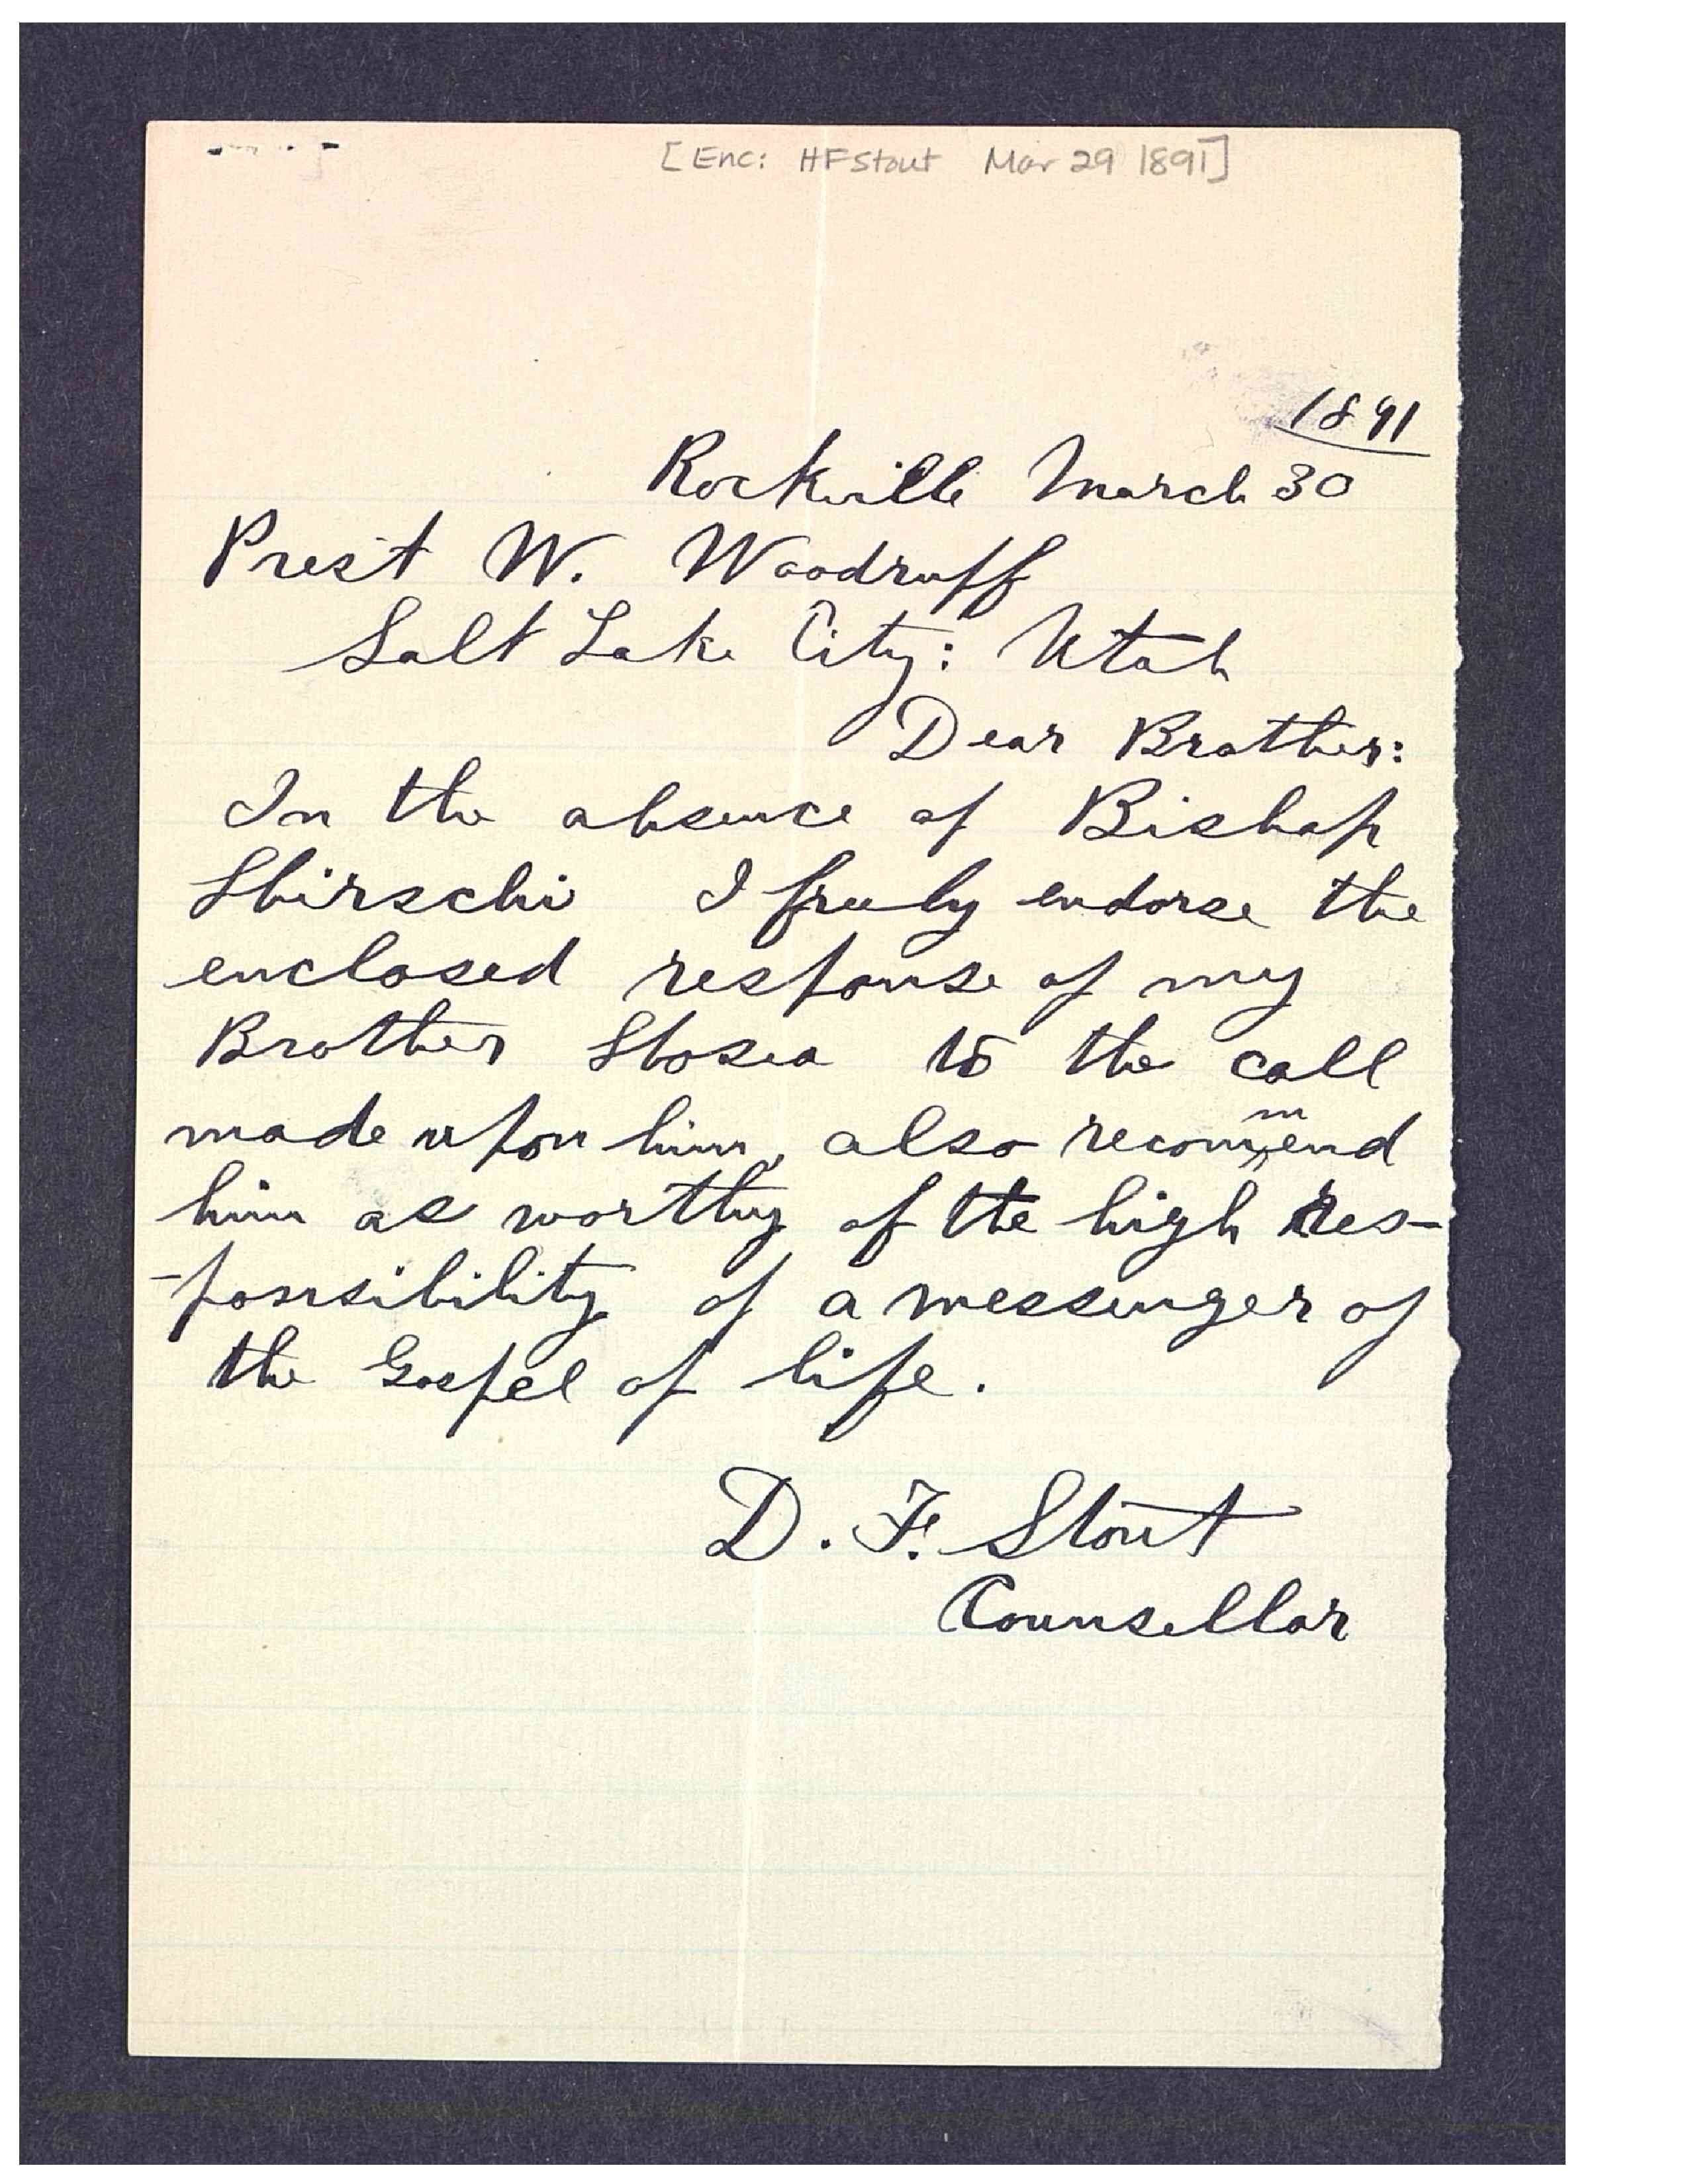 [Enc: HFStout Mar 29 1891]
1891
Rockville March 30
Prest W. Woodruff
Salt Lake City: Utah
Dear Brother:
In the absence of Bishop
Hirschi I freely endorse the
enclosed response of my
Brother Hosea to the call
made upon him, also recommend
him as worthy of the high res-
-ponsibility of a messenger of
the Gospel of life.
D. F. Stout
Counsellor